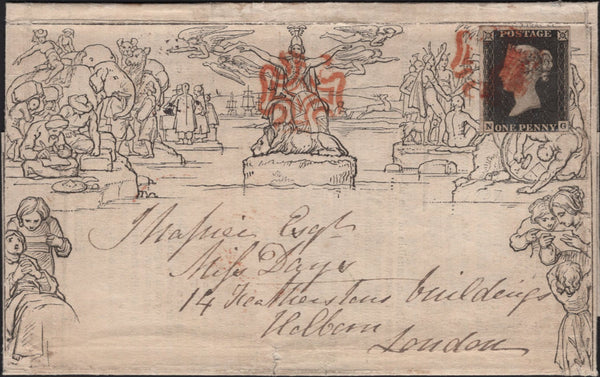 POSTAGE
N ONE PENNY G
Esqr
Miss Days
14 Featherstone buildings
Holborn
London